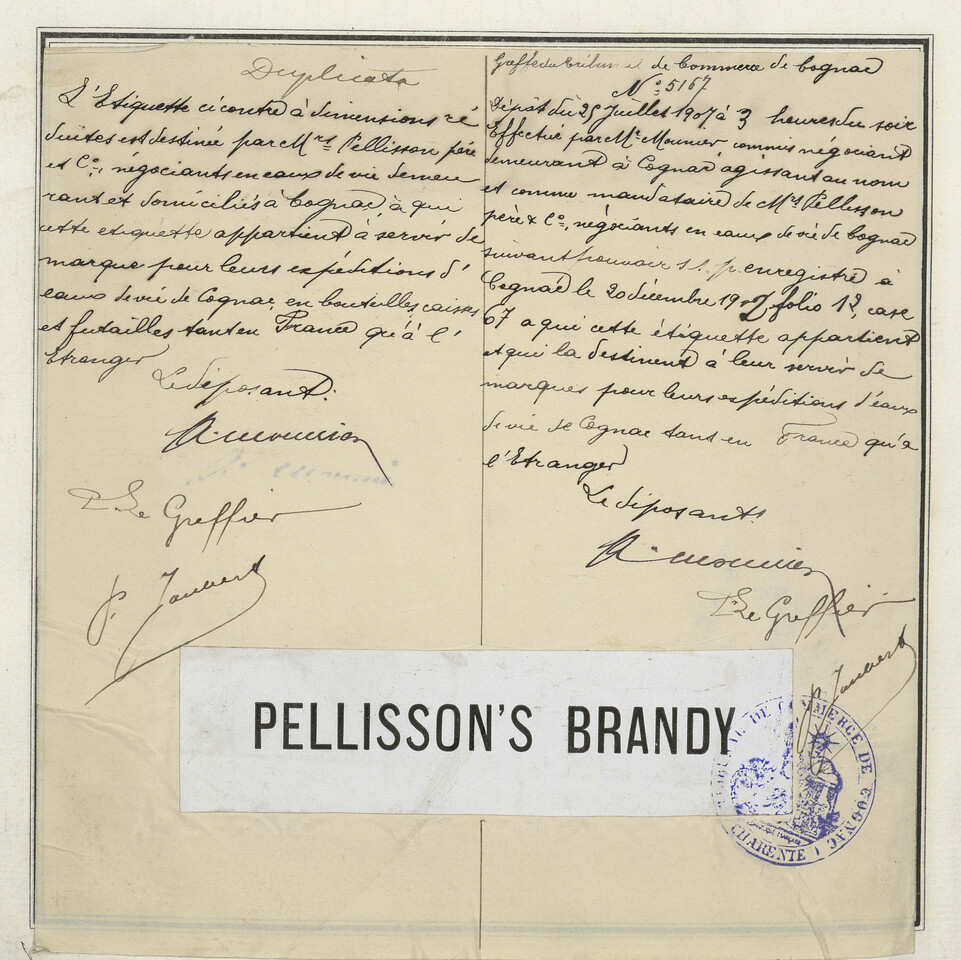 Duplicata
L'Etiquette ci contre à dimensions ré
duites est destinée par Mrs Pellisson père
et Co, négociants en eaux de vie demeu
rant et domiciliés à Cognac à qui
cette etiquette appartient à servir de
marque pour leurs expéditions d'
eaux de vie de Cognac, en bouteilles, caisses
et futailles tant en France qu'à l'
Etranger
Le déposant.
R. Mounier
P. Le Greffier
p. Jaubert
Greffe du Tribunal de Commerce de Cognac
No 5167
Dépôt du 25 Juillet 1907 à 3 heures du soir
Effectué par Mr Mounier commis négociant
demeurant à Cognac agissant au nom
et comme mandataire de Mrs Pellisson
père & Co, négociants en eaux de vie de Cognac
suivant pouvoir s.s.p. enregistré à
Cognac le 20 décembre 1902 folio 12, case
67 a qui cette étiquette appartient
et qui la destinent à leur servir de
marques pour leurs expéditions d'eaux
de vie de Cognac tant en France qu'a
l'Etranger
Le déposant
R. Mounier
P. Le Greffier
p. Jaubert
PELLISSON'S BRANDY
TRIBUNAL DE COMMERCE DE COGNAC
CHARENTE